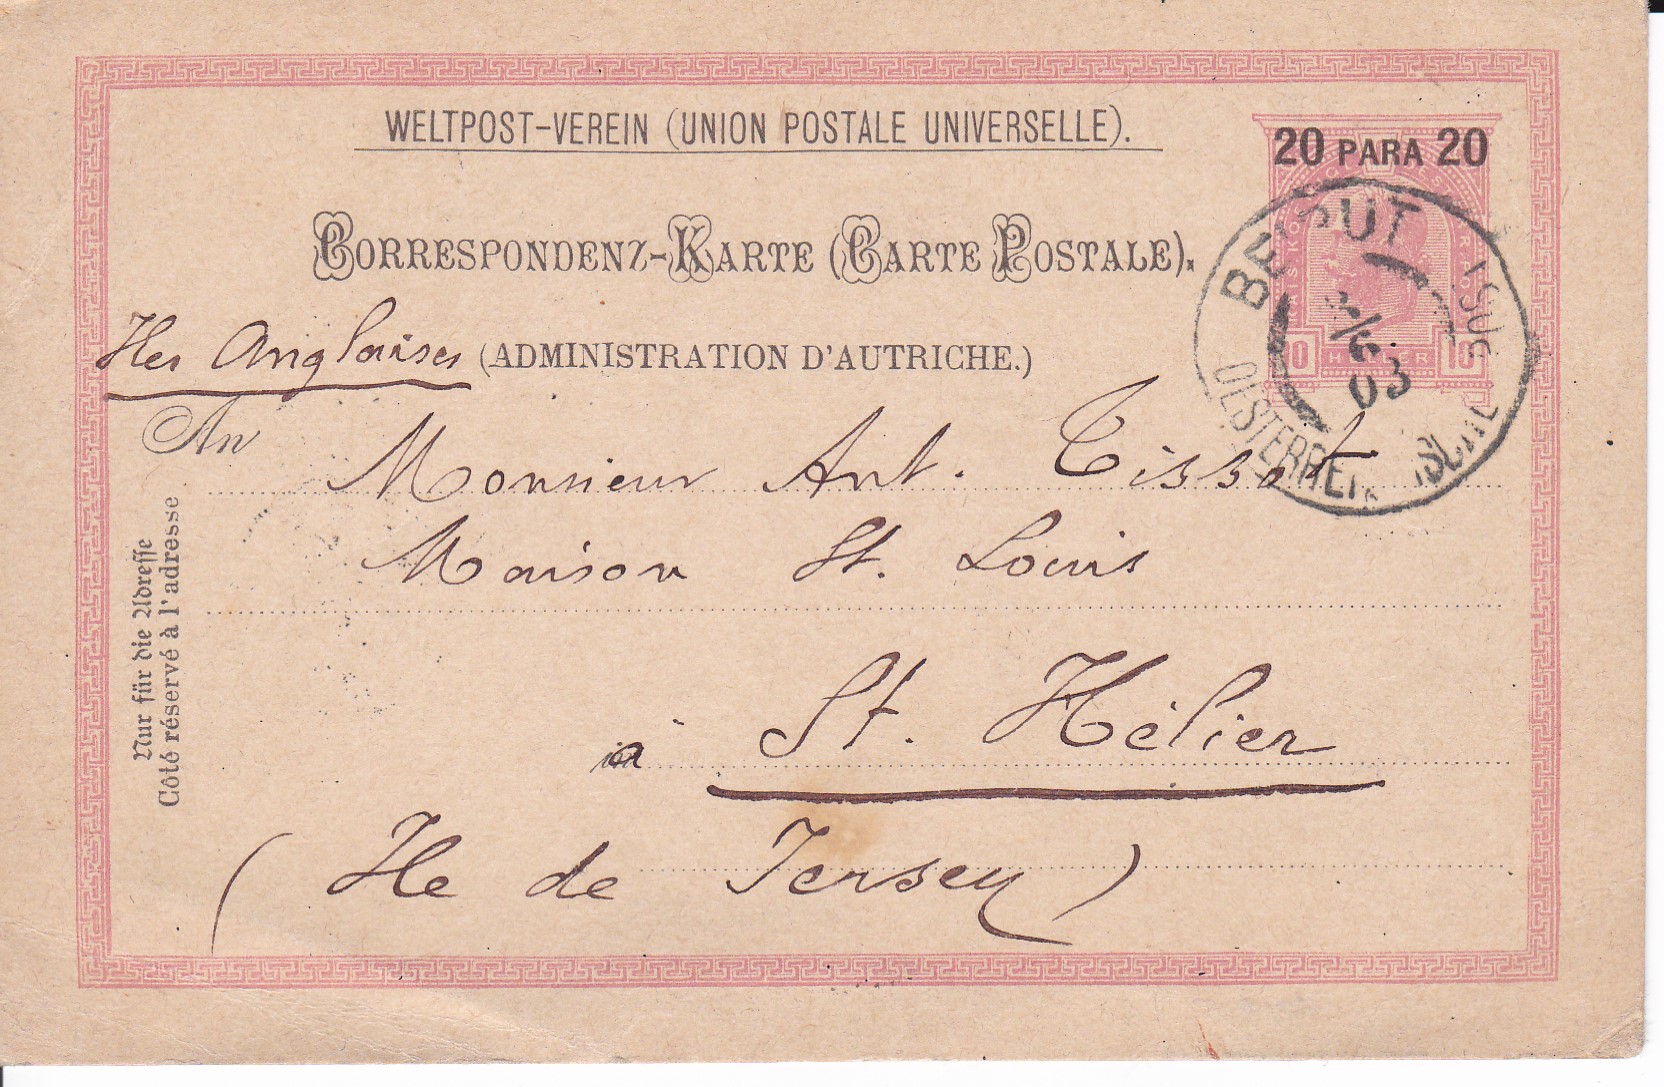 WELTPOST-VEREIN (UNION POSTALE UNIVERSELLE).
20 PARA 20
CORRESPONDENZ-KARTE (CARTE POSTALE).
Iles Anglaises (ADMINISTRATION D'AUTRICHE.)
10 HELLER 10
2/6
03
OESTERREI
An Monsieur Ant. Tissot
Maison St. Louis
à St. Hélier
(Ile de Jersey)
Nur für die Adresse
Côté réservé à l'adresse